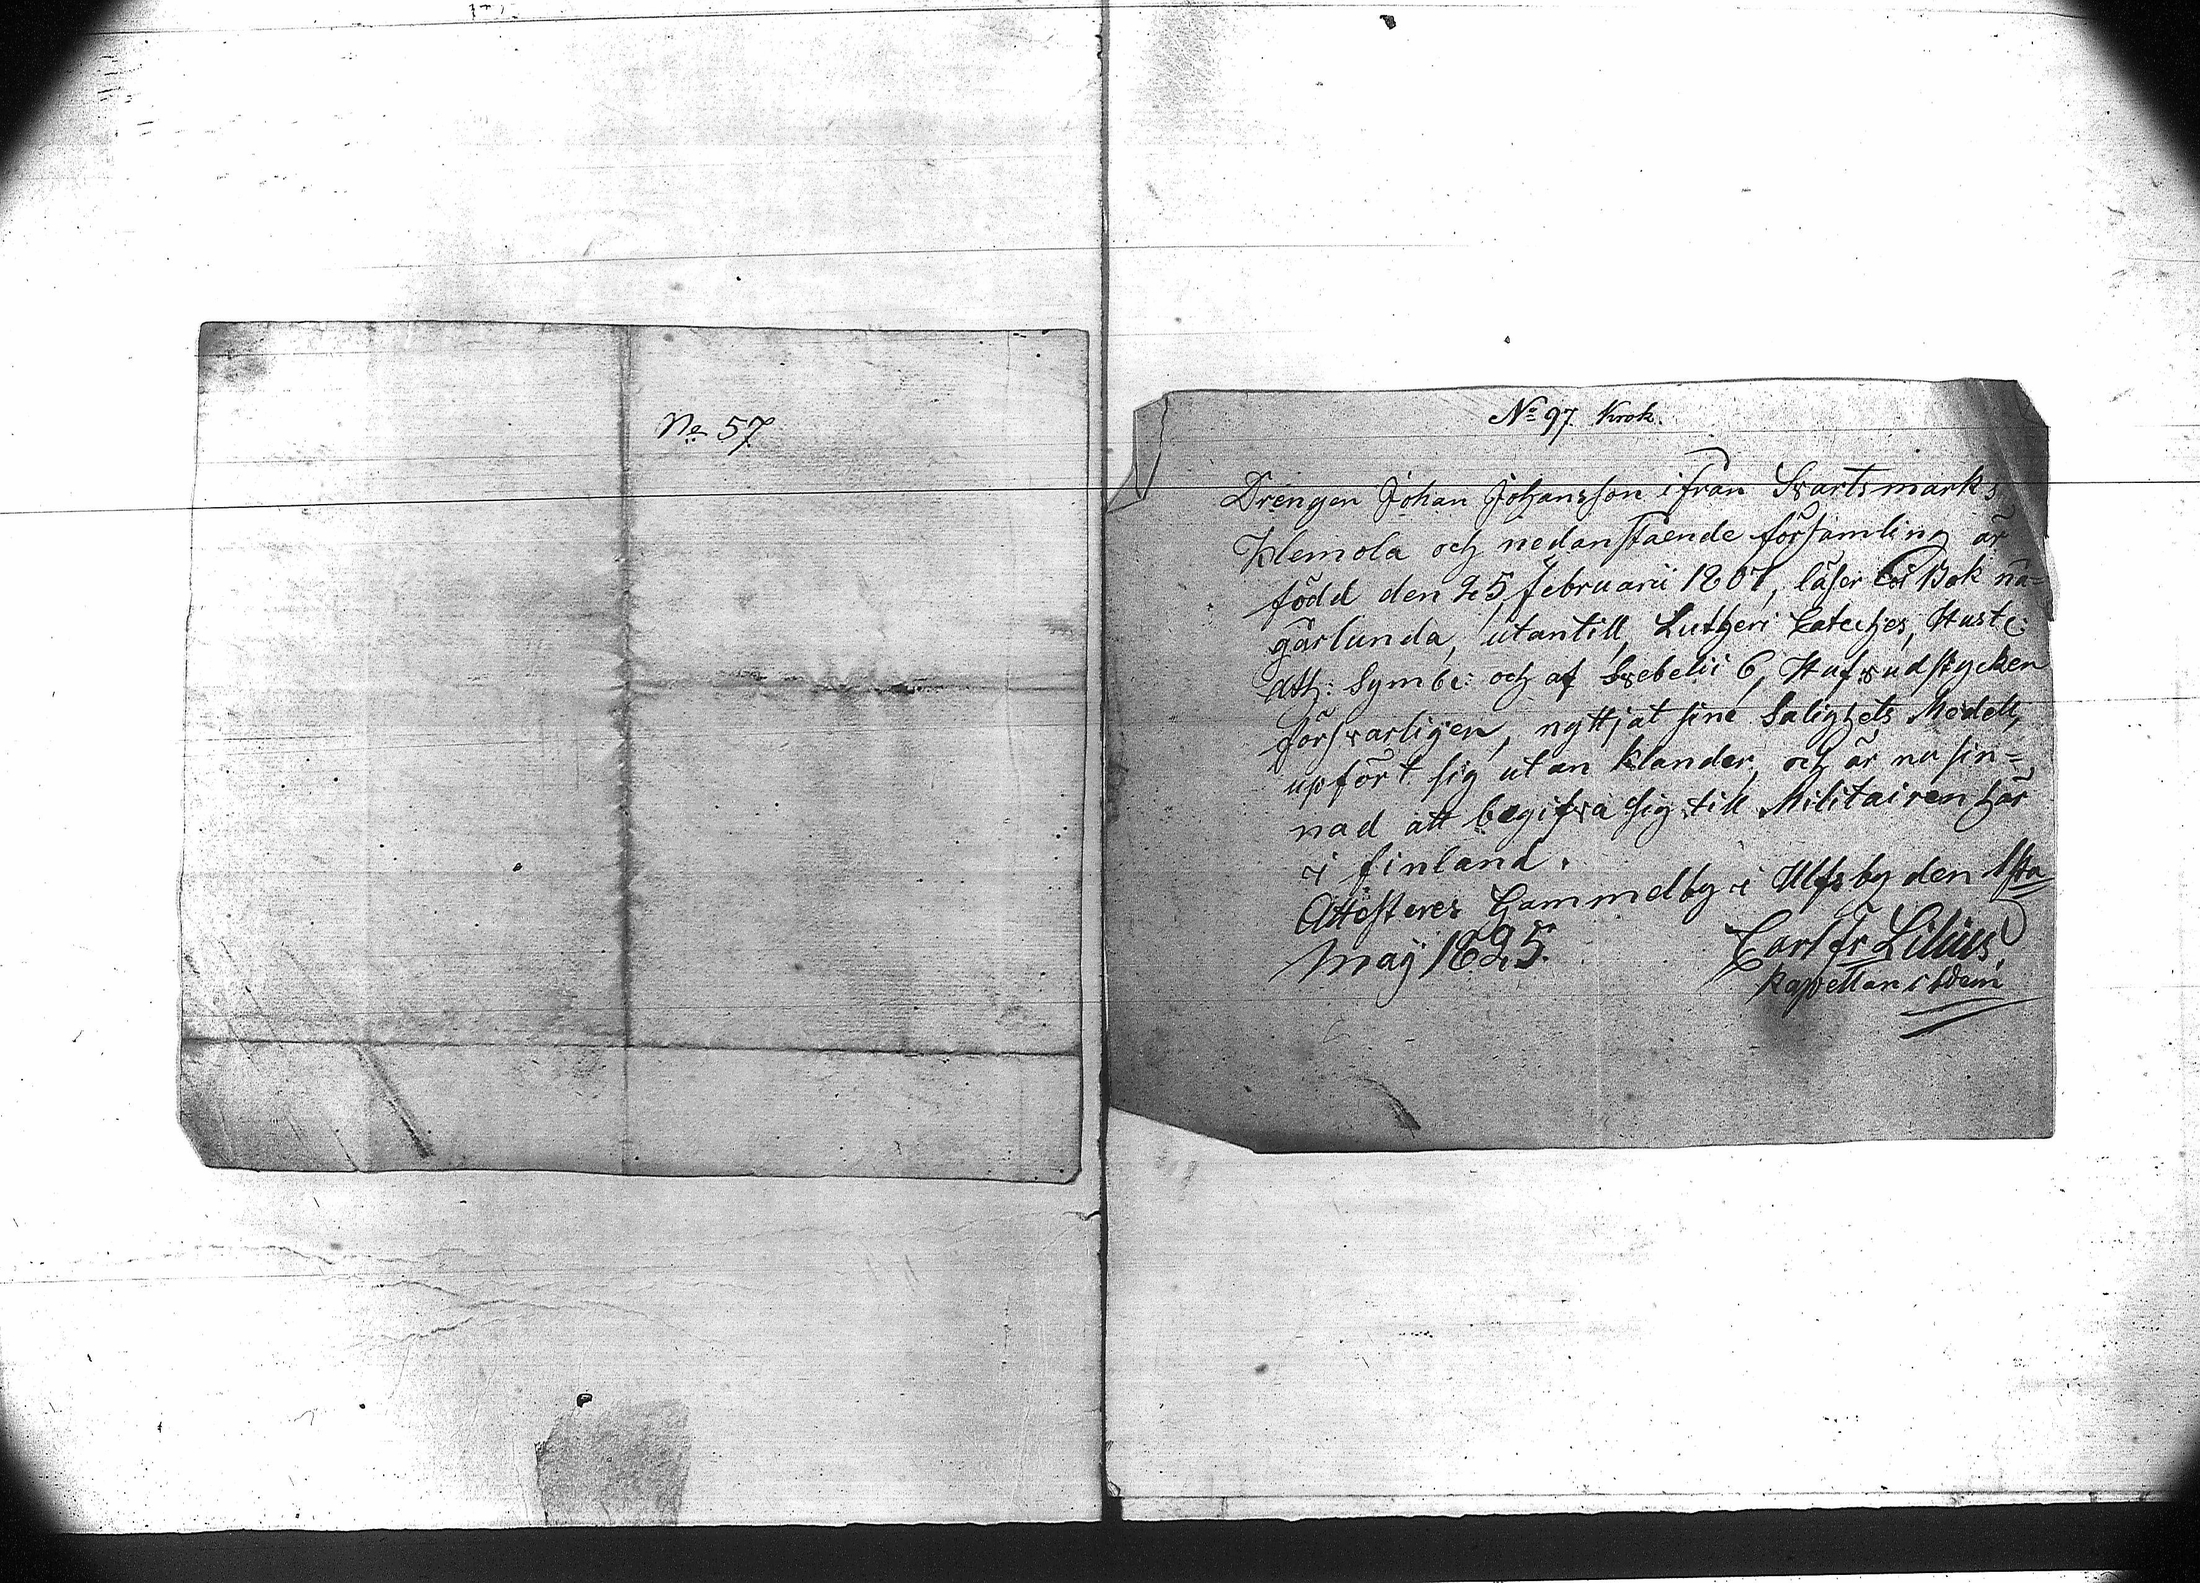 No 57
No 97. Krok.
Drengen Johan Johansson ifrån Svartsmarks
Klemola och nedanstående församling är
född den 25 februarii 1807, läser i Bok nå=
gärlunda, utantill, Lutheri Cateches, Hust:
Ath: Symb: och af Svebelii 6, Hufvudstycken
försvarligen, nyttjat sine Salighets Medell,
upfört sig utan klander, och är nu sin=
nad att begifva sig till Militairen här
i finland.
Attesteres Gammelby i Ulfsby den 1sta
May 1825.
Carl Fr Lilius.
Kapellan i